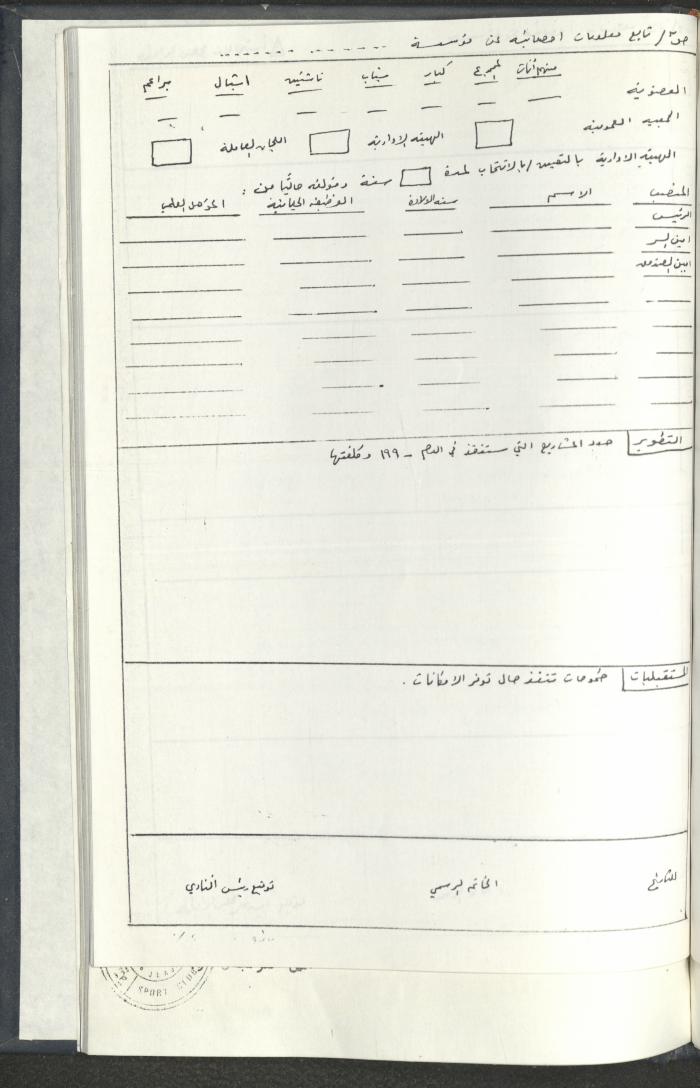 ص٣/ تابع معلومات احصائية عن مؤسسة ........ ........
العضوية منهم أناث المجموع كبار شباب ناشئين اشبال براعم
الهيئة العمومية الهيئة الادارية اللجان العاملة
الهيئة الادارية بالتعيين/بالانتخاب لمدة سنة ومؤلفه حالياً من :
المنصب الاسم سنة الولادة الوظيفة الحياتية المؤهل العلمي
الرئيس
امين السر
امين الصندوق
التطوير حدد المشاريع التي ستنفذ في العام - ١٩٩ وكلفتها
المستقبليات طموحات تنفذ حال توفر الامكانات .
التاريخ الخاتم الرسمي توقيع رئيس النادي
SPORT CLUB